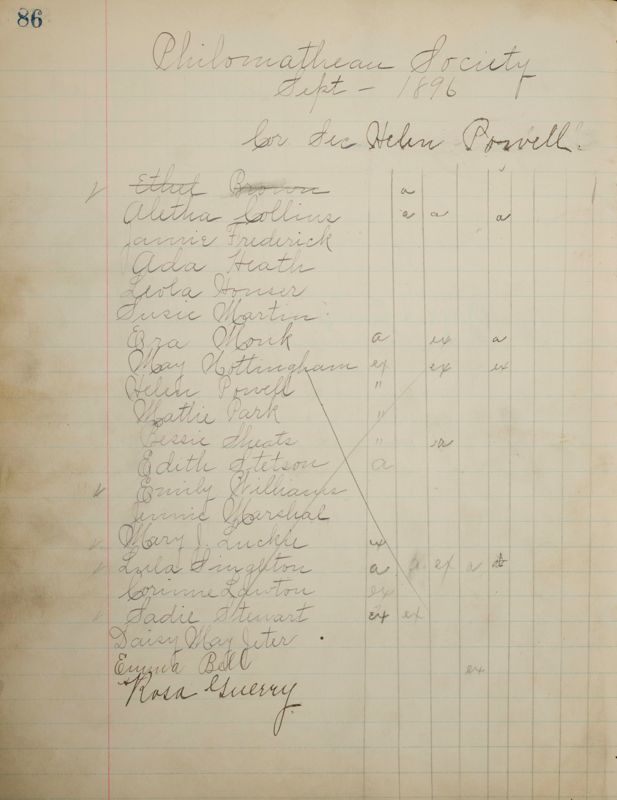 86
Philomathean Society
Sept - 1896
Cor Sec Helen Powell.
Ethel Brown a
Aletha Collins a a a
Jannie Frederick
Ada Heath
Leola Houser
Susie Martin
Era Monk a ex a
May Nottingham ex ex ex
Helen Powell "
Mattie Park "
Bessie Sheats " a
Edith Stetson a
Emily Williams
Jennie Marshal
Mary J. Luckie ex
Lula Singleton a a ex a
Corinne Lawton ex
Sadie Stewart ex ex
Daisy May Jeter
Emma Bell ex
Rosa Guerry